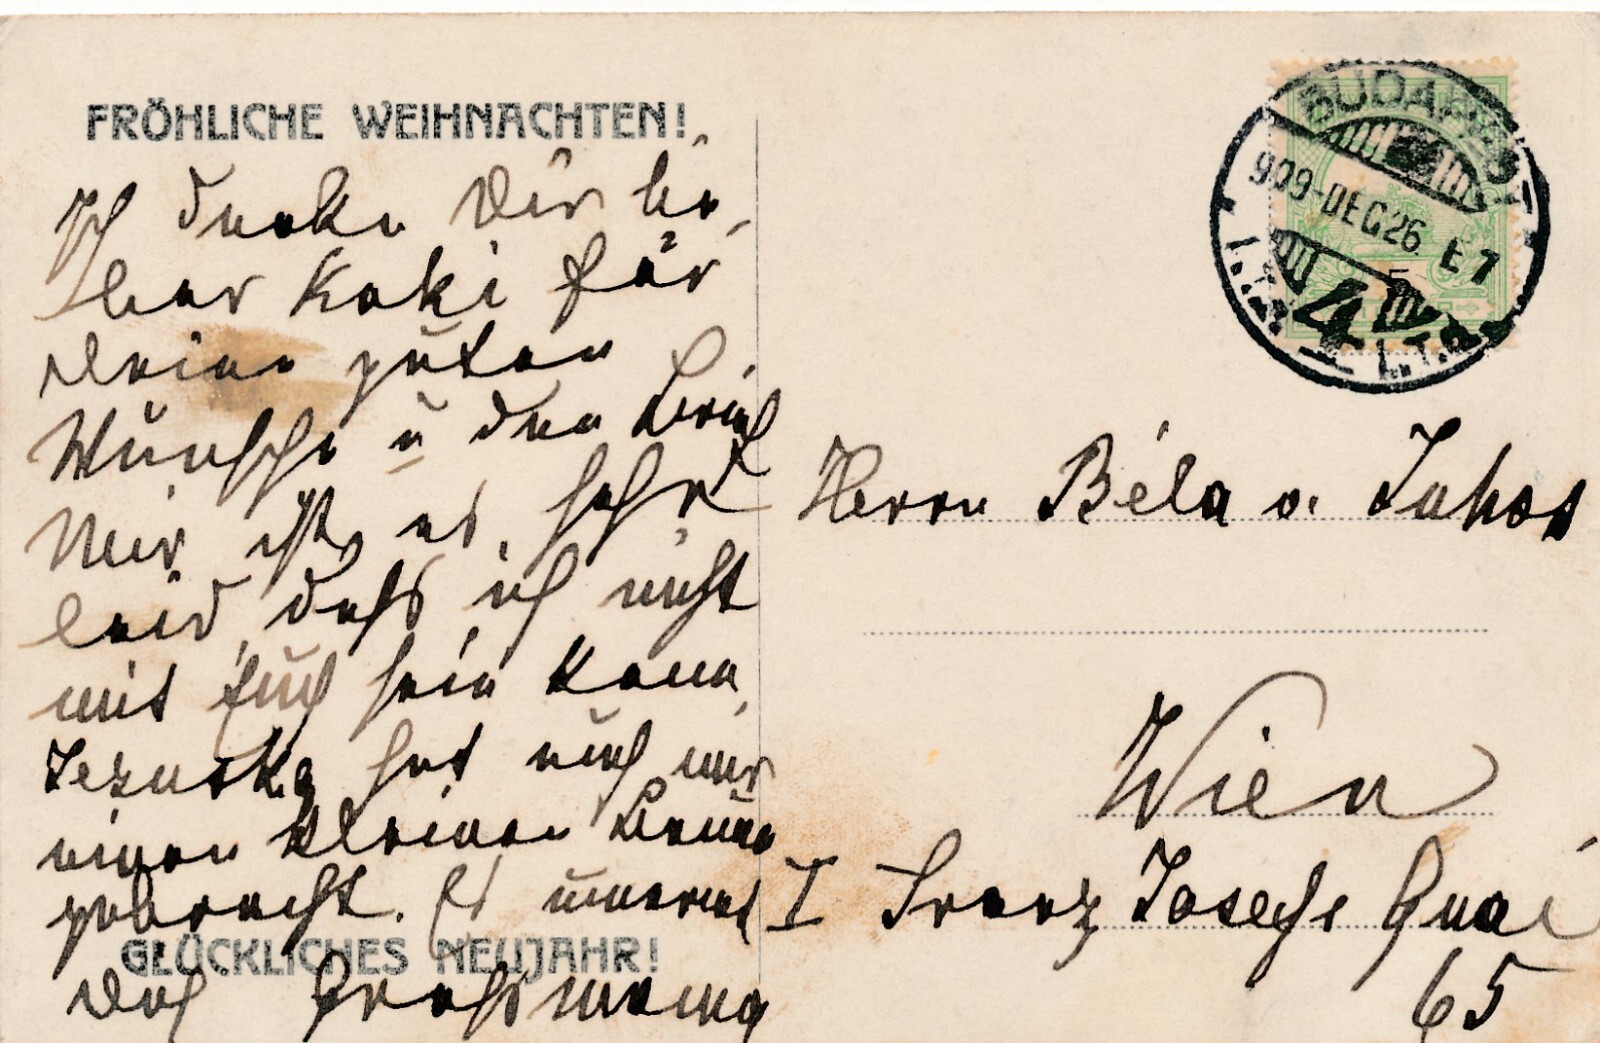 FRÖHLICHE WEIHNACHTEN!
Ich danke Dir lie-
ber Koki für
Deine guten
Wünsche u den Brief
Mir ist es sehr
leid, dass ich nicht
mit Euch sein kann,
Jezuska hat auch mir
einen kleinen Baum
gebracht. Es umarmt
GLÜCKLICHES NEUJAHR!
Dich Grossmama
BUDAPEST
909-DEC 26. E 7
4
Herrn Béla v.
Wien
I Franz Josefs Quai
65